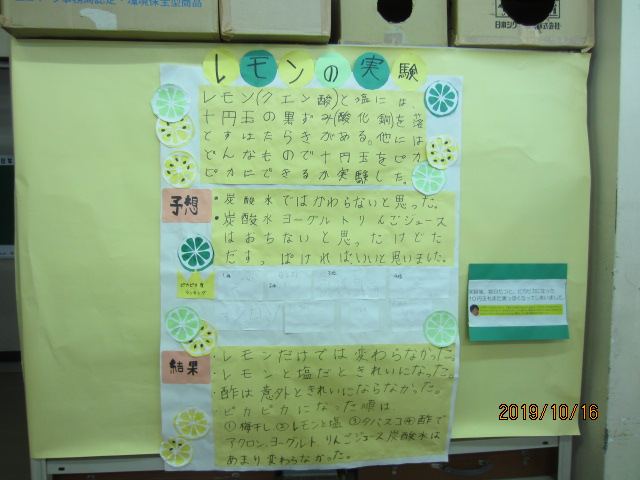 環境保全型商品
日本シ
レモンの実験
レモン(クエン酸)と塩には、
十円玉の黒ずみ(酸化銅)を落
とすはたらきがある。他には
どんなもので十円玉をピカ
ピカにできるか実験した。
予想
・炭酸水ではかわらないと思った。
・炭酸水ヨーグルトりんごジュース
はおちないと思ったけどた
だす。ばければいいと思いました。
ピカピカ度
ランキング
結果
・レモンだけでは変わらなかった。
・レモンと塩だときれいになった。
・酢は意外ときれいにならなかった。
・ピカピカになった順は
①梅干し、②レモンと塩 ③タバスコ④酢で
アクロン、ヨーグルト、りんごジュース炭酸水は
あまり変わらなかった。
10円玉もまた黒っぽくなってしまいました。
2019/10/16